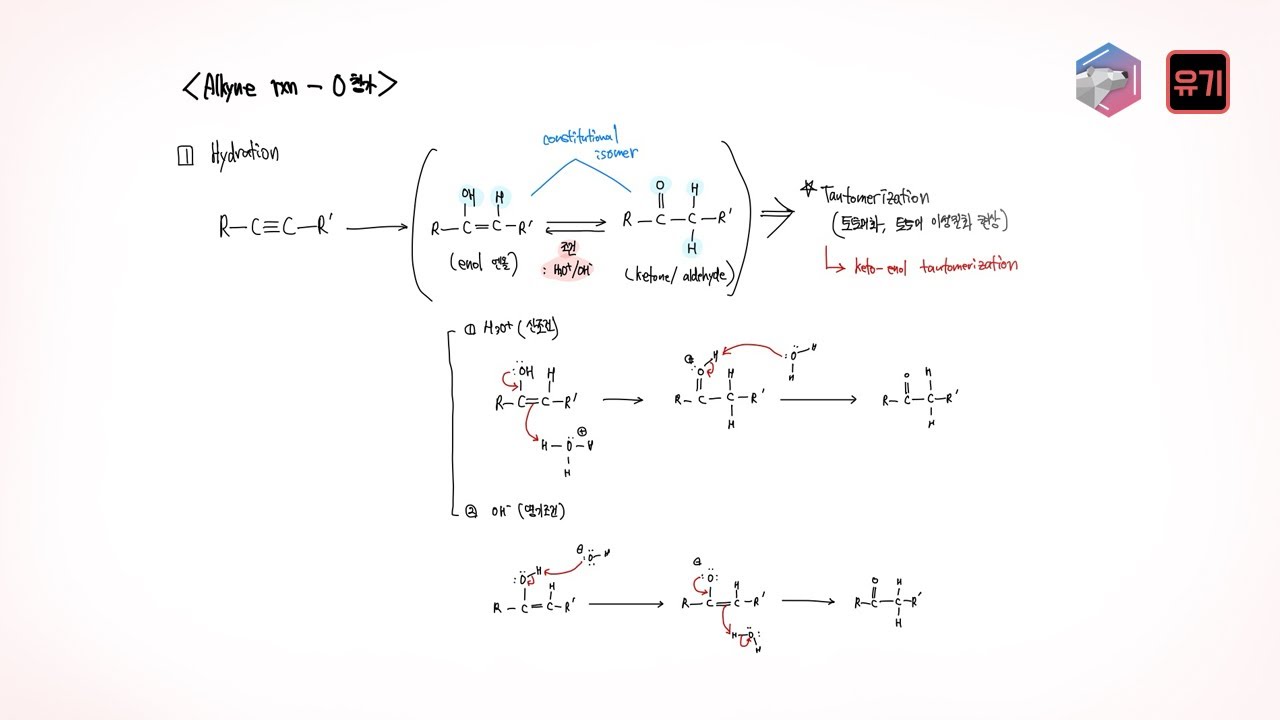 <Alkyne rxn - O 첨가>
유기
1 Hydration
constitutional
isomer
OH H
R-C≡C-R'
R-C=C-R'
(enol 엔올)
조건
: H3O+/OH-
O H
R-C-C-R'
H
(ketone/ aldehyde)
☆ Tautomerization
(토토머화, 토토머 이성질화 현상)
↳ keto-enol tautomerization
① H3O+ (산조건)
:ÖH H
R-C=C-R'
H-Ö-H
⊕
H
⊕
:O H H
R-C-C-R'
H
:Ö-H
H
O H
R-C-C-R'
H
② OH- (염기조건)
⊖ :Ö-H
:Ö H H
R-C=C-R'
⊖
:Ö: H
R-C=C-R'
H-Ö:
H
O H
R-C-C-R'
H